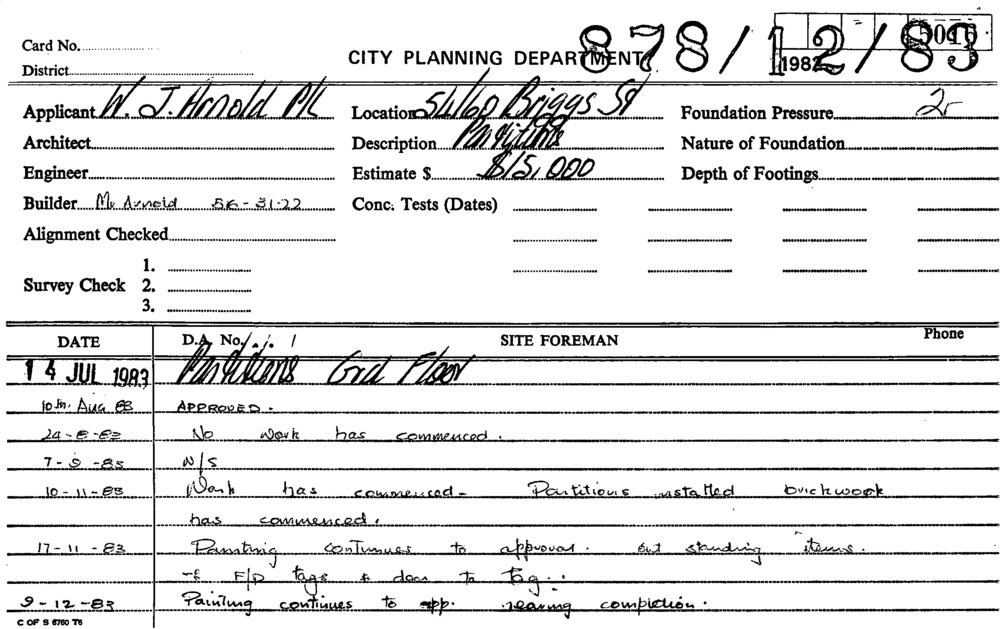 Card No.
District
CITY PLANNING DEPARTMENT
878/12/83
198
Applicant W. J. Arnold P/L
Location 54/60 Briggs St
Foundation Pressure
Architect
Description Partitions
Nature of Foundation
Engineer
Estimate $ $15,000
Depth of Footings
Builder Mr Arnold 56-31-22
Conc. Tests (Dates)
Alignment Checked
Survey Check
1.
2.
3.
DATE
D.A. No.
SITE FOREMAN
Phone
14 JUL 1983 Partitions Grd Floor
10th. Aug 83 APPROVED.
24-8-83 No work has commenced.
7-9-83 N/S
10-11-83 Work has commenced - Partitions installed brickwork
has commenced.
17-11-83 Painting continues to approval. out standing items.
F/D tags & door to tag.
9-12-83 Painting continues to app. nearing completion.
C OF S 6760 T6